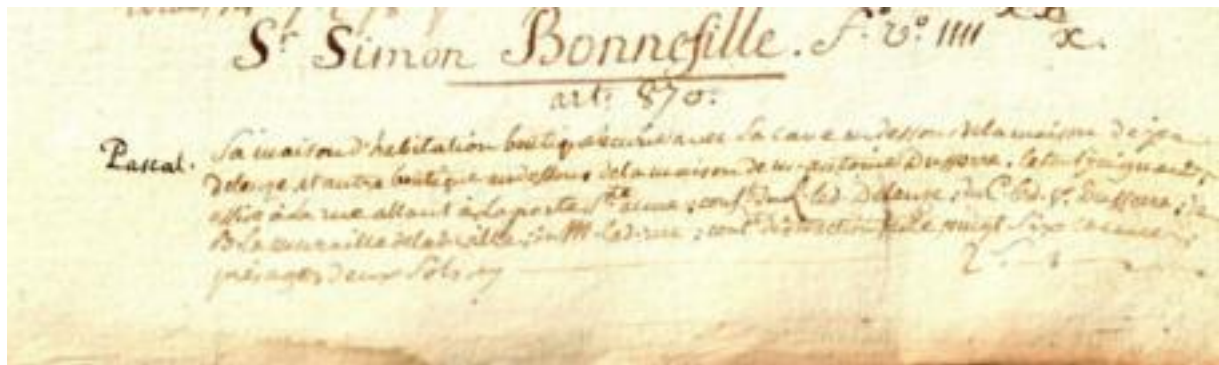 Sr Simon Bonnefille. f.º v.º IIII xx x.
art: 870.
Pascal. Sa maison d'habitation boutique avec sa cave en dessous de la maison de jean
deleuze et autre boutique en dessous de la maison de mr antoine Dusserre, le tout joignant,
assis à la rue allant à la porte ste anne; conf.te du led. Deleuze, du C. led. Sr. Dusserre, du
B. la muraille de la ville, du M. lad. rue; cont. d'estimation vingt six cannes
présagée deux sols